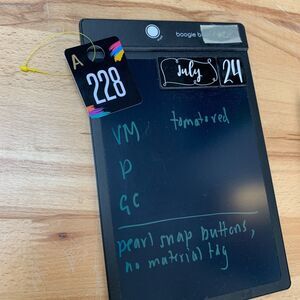 boogie b
A
228
July 24
VM tomato red
P
GC
pearl snap buttons,
no material tag